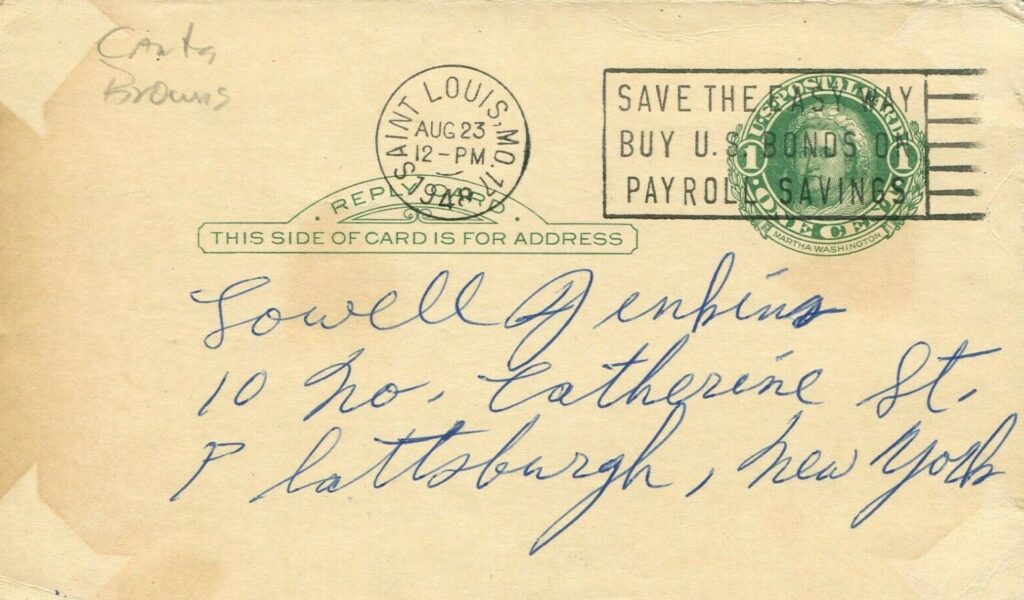 Browns
SAINT LOUIS, MO.
AUG 23
12-PM
1948
SAVE THE EASY WAY
BUY U.S. BONDS ON
PAYROLL SAVINGS
U.S. POSTAL CARD
1 1
ONE CENT
MARTHA WASHINGTON
REPLY CARD
THIS SIDE OF CARD IS FOR ADDRESS
Lowell Jenkins
10 No. Catherine St.
Plattsburgh, New York